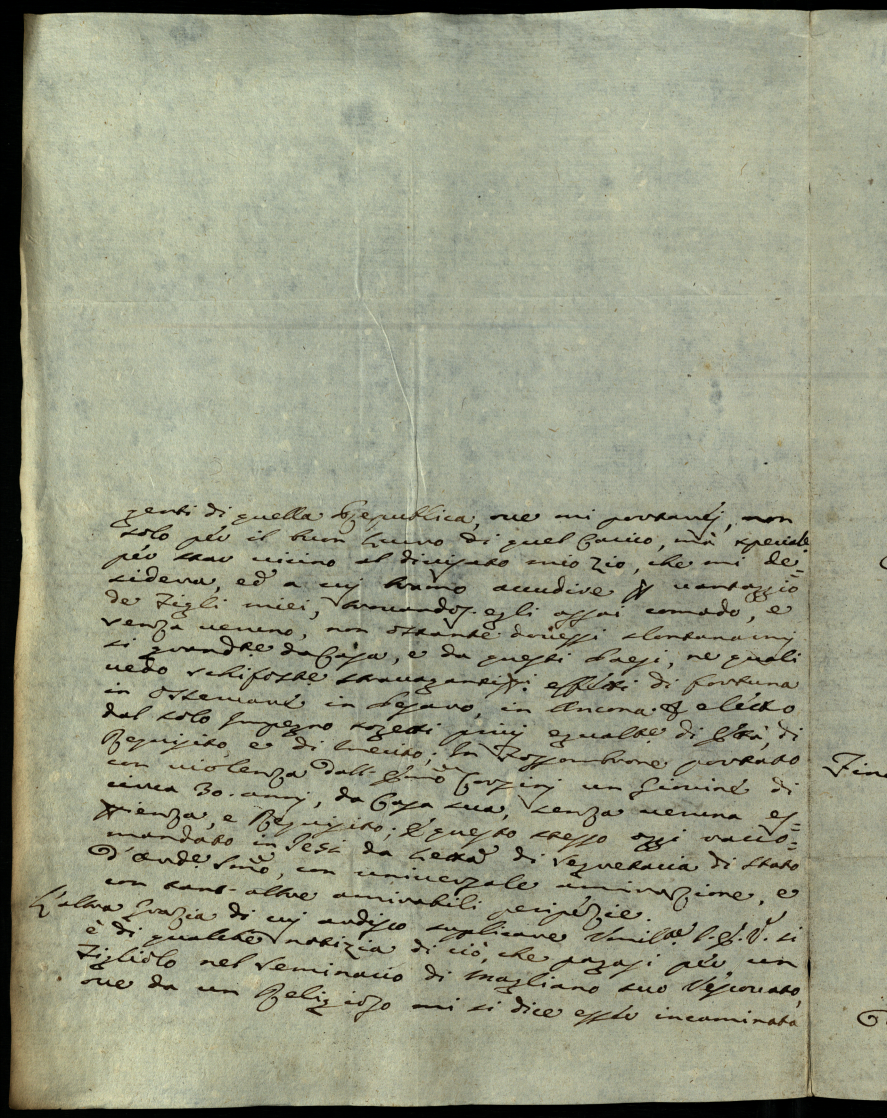 genti di quella Republica, ove mi portarej, non
solo pér il buon lucro di quel Carico, mà special:
pér star vicino al divisato mio Zio, che mi de:
sidera, ed' a cuj bramo accudire p vantaggio
de Figli miei, trouandosi egli assai comodo, e
senza veruno, non ostanté dovessi slontanarmj
sì grandte da Casa, e da questi Paesi, ne quali
vedo schifosté stravagantissi effetti di fortuna
in Ostemari in Pesaro, in Ancona eletto
dal solo Impegno sogetti privj egualté di Età, di
Requisito, e di merito; In Fossombrone portato
con violenza dall' Emo Corsinj un Giovine di
circa 30. annj, da Casa sua, senza veruna es=
perienza, e Requisito; E questo stesso oggi racco=
mandato in Jesi da Letta di Segretaria di Stato
d'ordé Smo, con universale amirazione, e
con tant-altre amirabili peripézie.
L'altra Grazia di cuj ardisco suplicare Umilté l'E. V. si
è di qualché notizia di ciò, che pagasi pér un
Figliolo nel Seminario di Magliano suo Véscouato,
ove da un Religioso mi si dice esséré incaminata